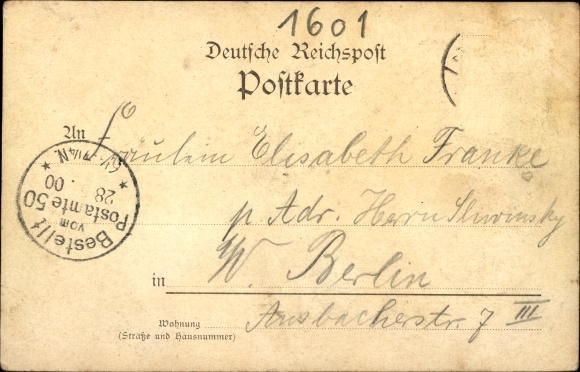 1601
Deutsche Reichspost
Postkarte
An Fräulein Elisabeth Franke
p Adr. Herrn Sliwinsky
in W. Berlin
Wohnung Ansbacherstr. 7 III
(Straße und Hausnummer)
Bestellt
vom
Postamte 50
28 00